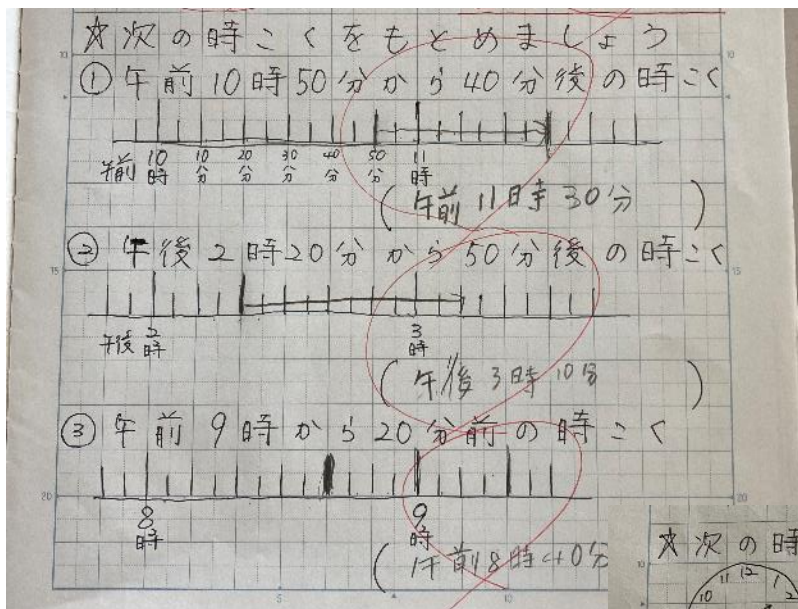 ☆次の時こくをもとめましょう
① 午前10時50分から40分後の時こく
午前 10時 10分 20分 30分 40分 50分 11時
(午前11時30分)
② 午後2時20分から50分後の時こく
午後 2時 3時
(午後3時10分)
③ 午前9時から20分前の時こく
8時 9時
(午前8時40分
☆次の時
10 11 12 1 2